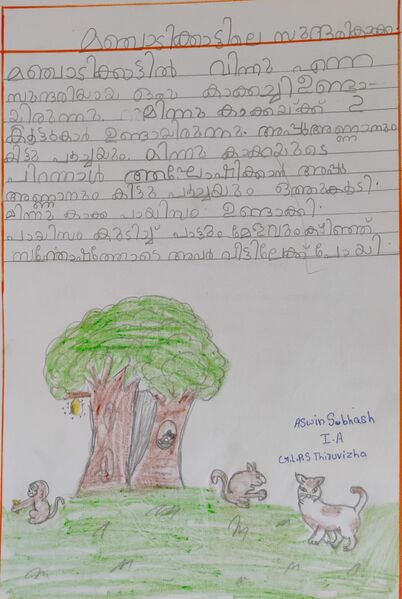 മഞ്ചാടിക്കാട്ടിലെ സുന്ദരികാക്ക
മഞ്ചാടിക്കാട്ടിൽ മിന്നു എന്ന
സുന്ദരിയായ ഒരു കാക്കച്ചി ഉണ്ടാ-
യിരുന്നു. മിന്നു കാക്കയ്ക്ക് 2
കൂട്ടുകാർ ഉണ്ടായിരുന്നു. അപ്പുഅണ്ണാനും
കിട്ടു പൂച്ചയും. മിന്നു കാക്കയുടെ
പിറന്നാൾ ആഘോഷിക്കാൻ അപ്പു
അണ്ണാനും കിട്ടു പൂച്ചയും ഒത്തുകൂടി.
മിന്നു കാക്ക പായിസം ഉണ്ടാക്കി.
പായിസം കുടിച്ച് പാട്ടും മേളവും കഴിഞ്ഞ്
സന്തോഷത്തോടെ അവർ വീട്ടിലേക്ക് പോയി.
Aswin Subhash
I.A
G.L.P.S Thiruvizha